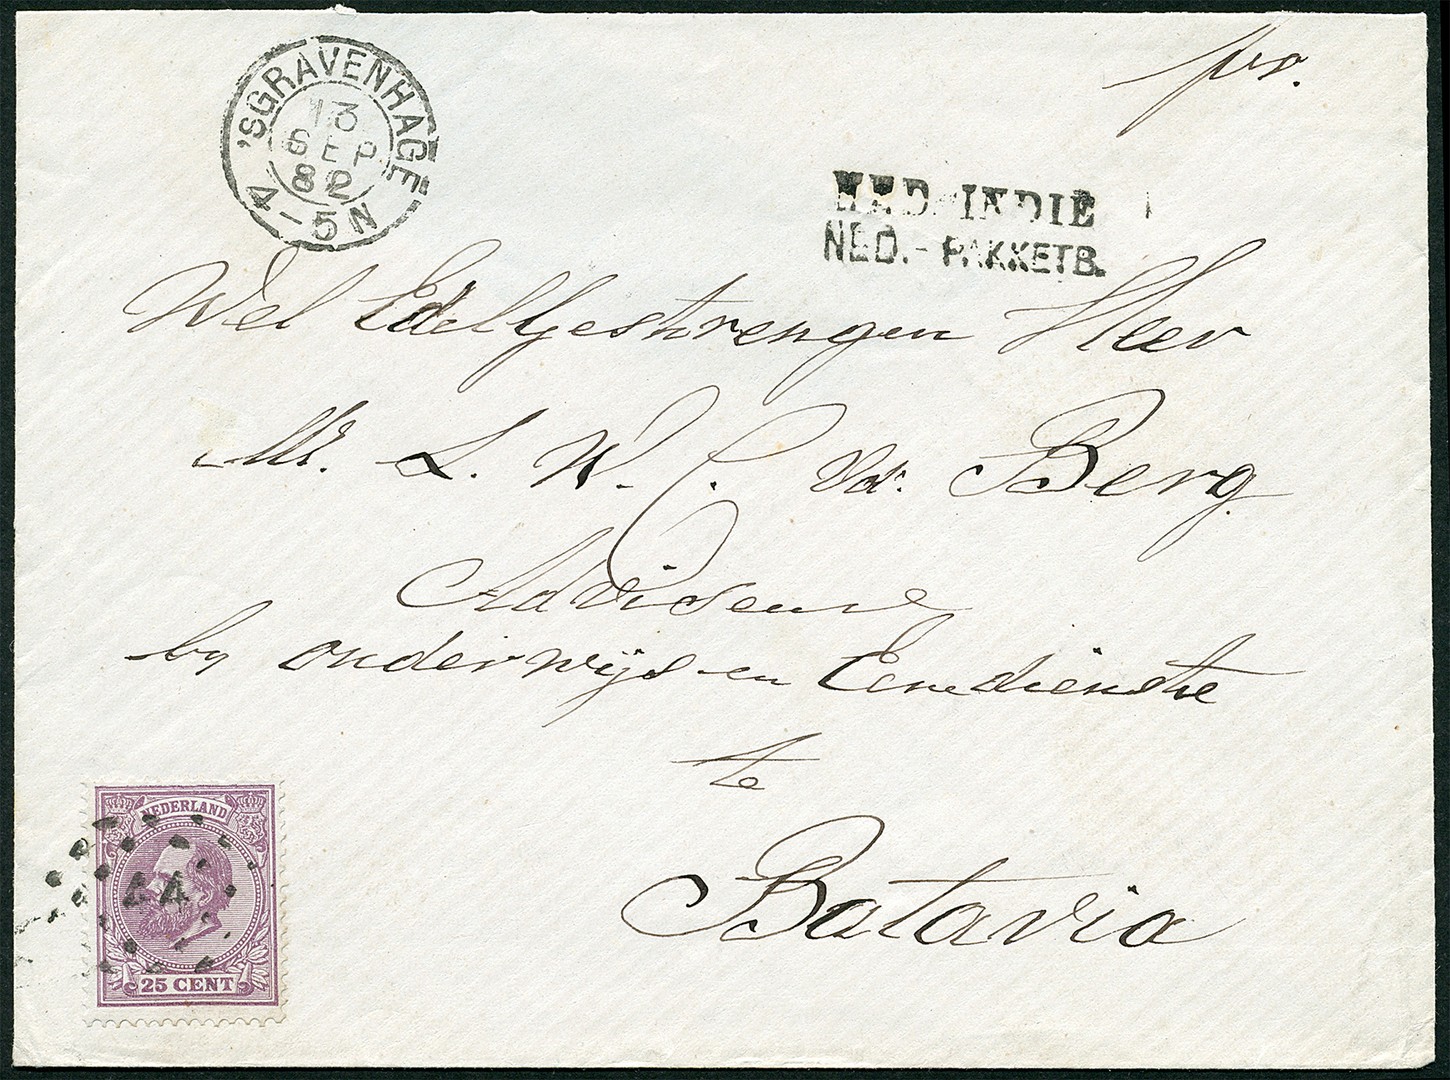 'SGRAVENHAGE
13
SEP
82
4-5N
pr.
NED. INDIË
NED.-PAKKETB.
Wel EdelGestrengen Heer
Mr. L. W. C. vd. Berg
Adviseur
by onderwijs en Eeredienste
te
Batavia
NEDERLAND
44
25 CENT